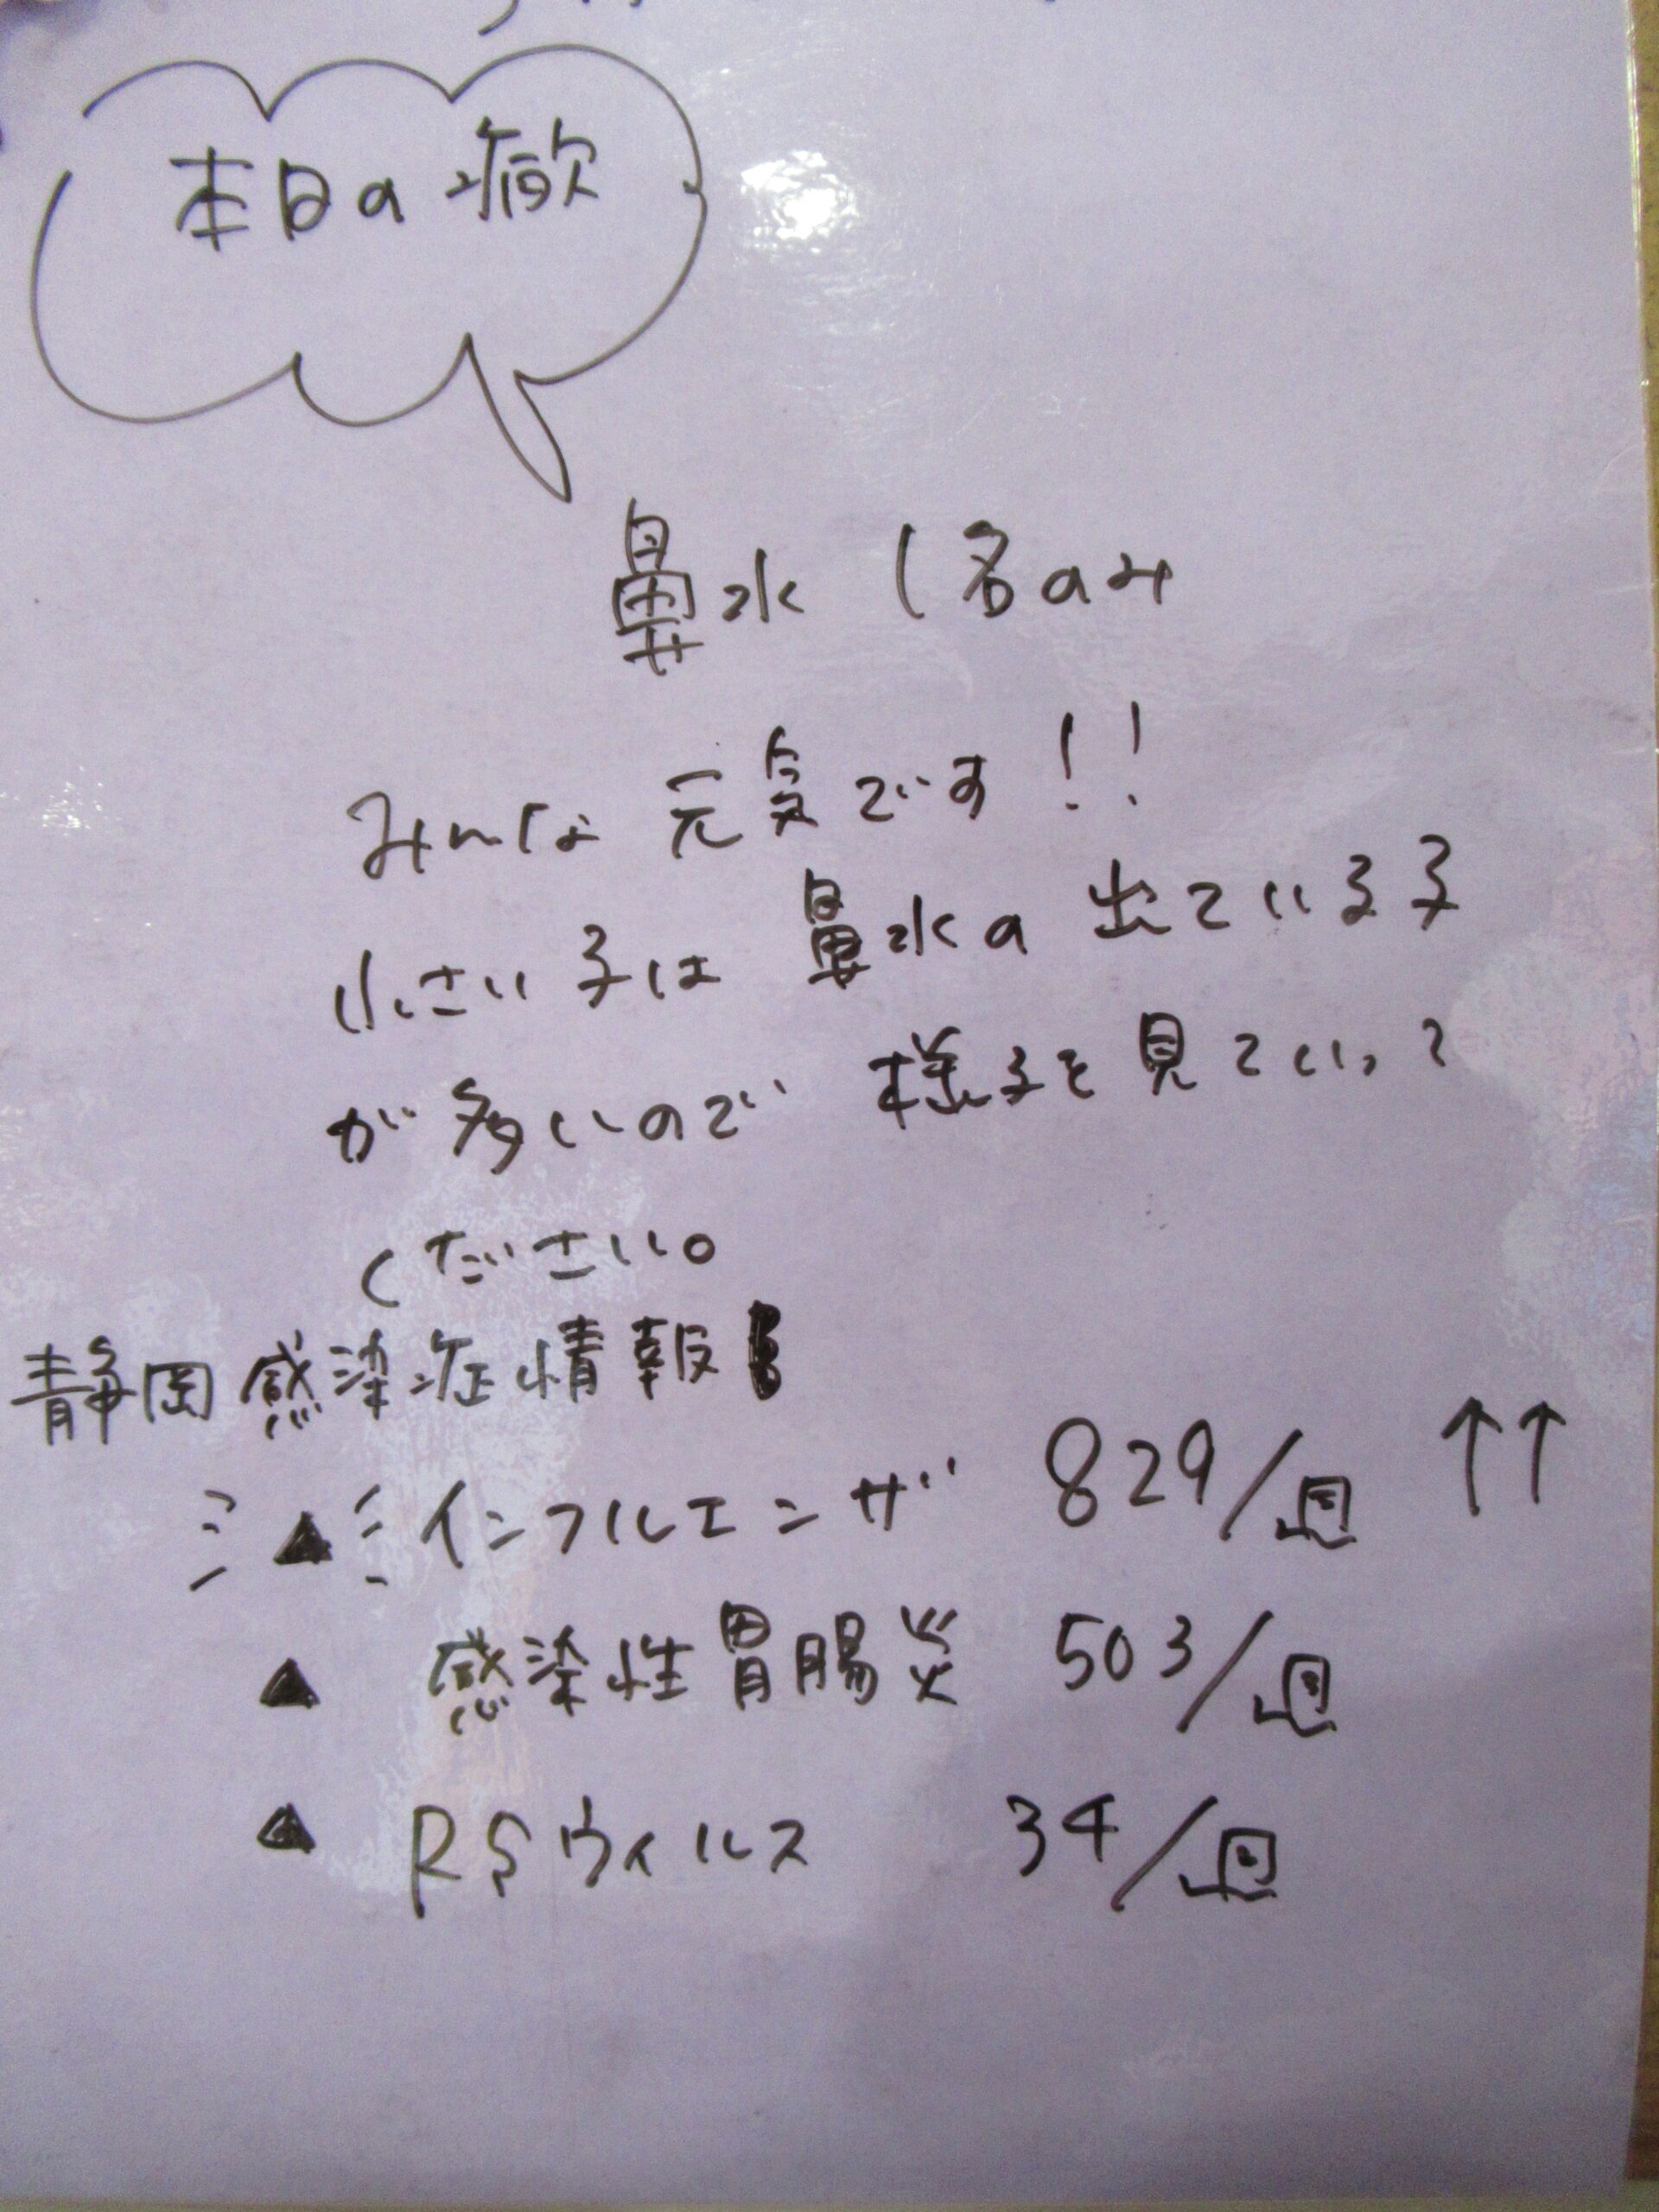 本日の病欠
鼻水 1名のみ
みんな元気です!!
小さい子は鼻水の出ている子
が多いので様子を見ていって
ください。
静岡感染症情報
▲ インフルエンザ 829/週 ↑↑
▲ 感染性胃腸炎 503/週
▲ RSウィルス 34/週